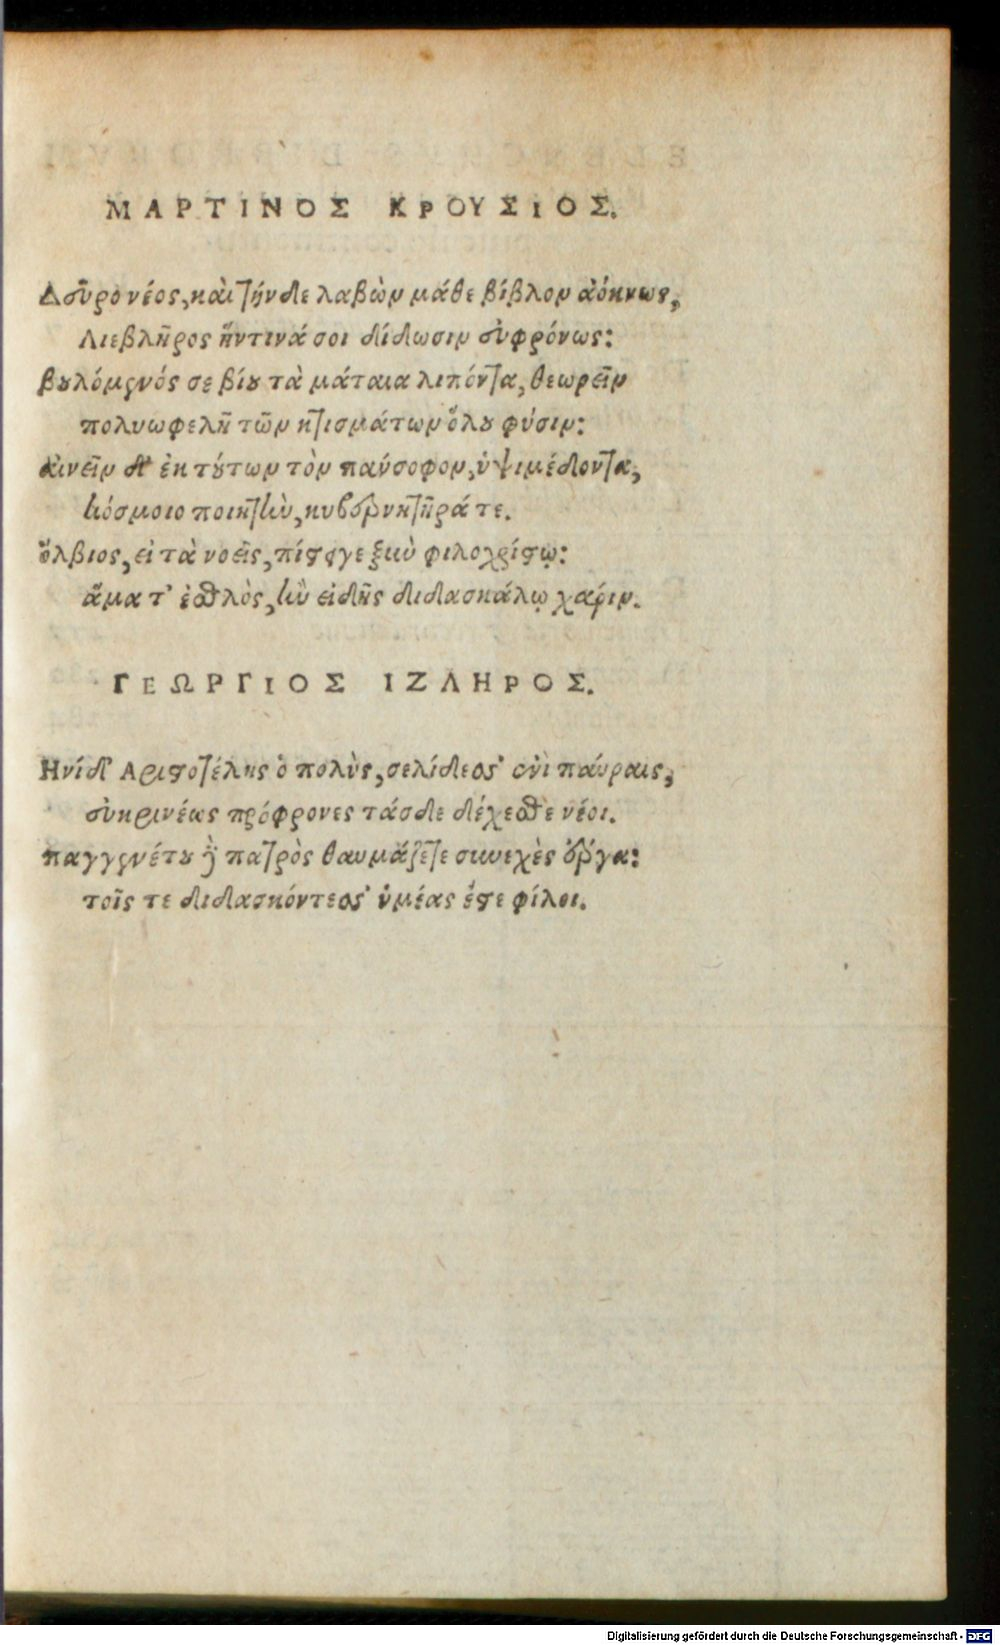 ΜΑΡΤΙΝΟΣ ΚΡΟΥΣΙΟΣ.
Δεῦρο νέος, καὶ τήνδε λαβὼν μάθε βίβλον ἀόκνως,
Λιεβλῆρος ἥντινά σοι δίδωσιν εὐφρόνως:
βουλόμενός σε βίου τὰ μάταια λιπόντα, θεωρεῖν
πολυωφελῆ τῶν κτισμάτων ὅλου φύσιν:
αἰνεῖν δ' ἐκ τούτων τὸν πάνσοφον, ὑψιμέδοντα,
κόσμοιο ποιητὴν, κυβερνητῆρά τε.
ὄλβιος, εἰ τὰ νοεῖς, πίστει γε ξὺν φιλοχρίστῳ:
ἅμα τ' ἐσθλὸς, ἢν εἰδῇς διδασκάλῳ χάριν.
ΓΕΩΡΓΙΟΣ ΙΖΛΗΡΟΣ.
Ηνίδ' Αριστοτέλης ὁ πολὺς, σελίδεσσ' ἐνὶ παύραις,
εὐκρινέως πρόφρονες τάσδε δέχεσθε νέοι.
παγγενέτου καὶ πατρὸς θαυμάζετε συνεχὲς ἔργα:
τοῖς τε διδασκόντεσσ' ὑμέας ἔστε φίλοι.
Digitalisierung gefördert durch die Deutsche Forschungsgemeinschaft - DFG